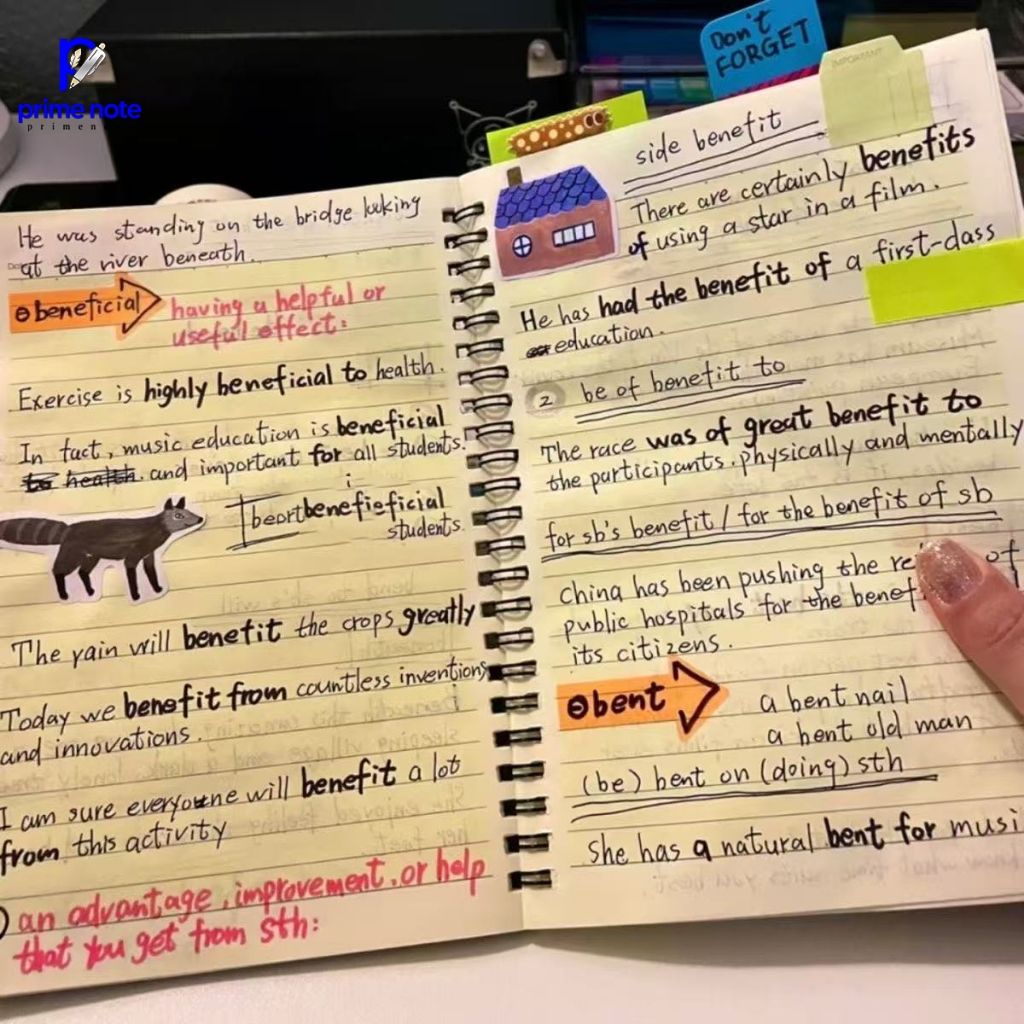 prime note
Don't
FORGET
IMPORTANT
He was standing on the bridge looking
at the river beneath.
beneficial
having a helpful or
useful effect:
Exercise is highly beneficial to health.
In fact, music education is beneficial
to health. and important for all students.
i
students.
The rain will benefit the crops greatly
Today we benefit from countless inventions
and innovations.
I am sure everyone will benefit a lot
from this activity
an advantage, improvement, or help
that you get from sth:
side benefit
There are certainly benefits
of using a star in a film.
He has had the benefit of a first-class
education.
2 be of benefit to
The race was of great benefit to
the participants. physically and mentally
for sb's benefit / for the benefit of sb
China has been pushing the of
public hospitals for the
its citizens.
bent
a bent nail
a bent old man
(be) bent on (doing) sth
She has a natural bent for musi